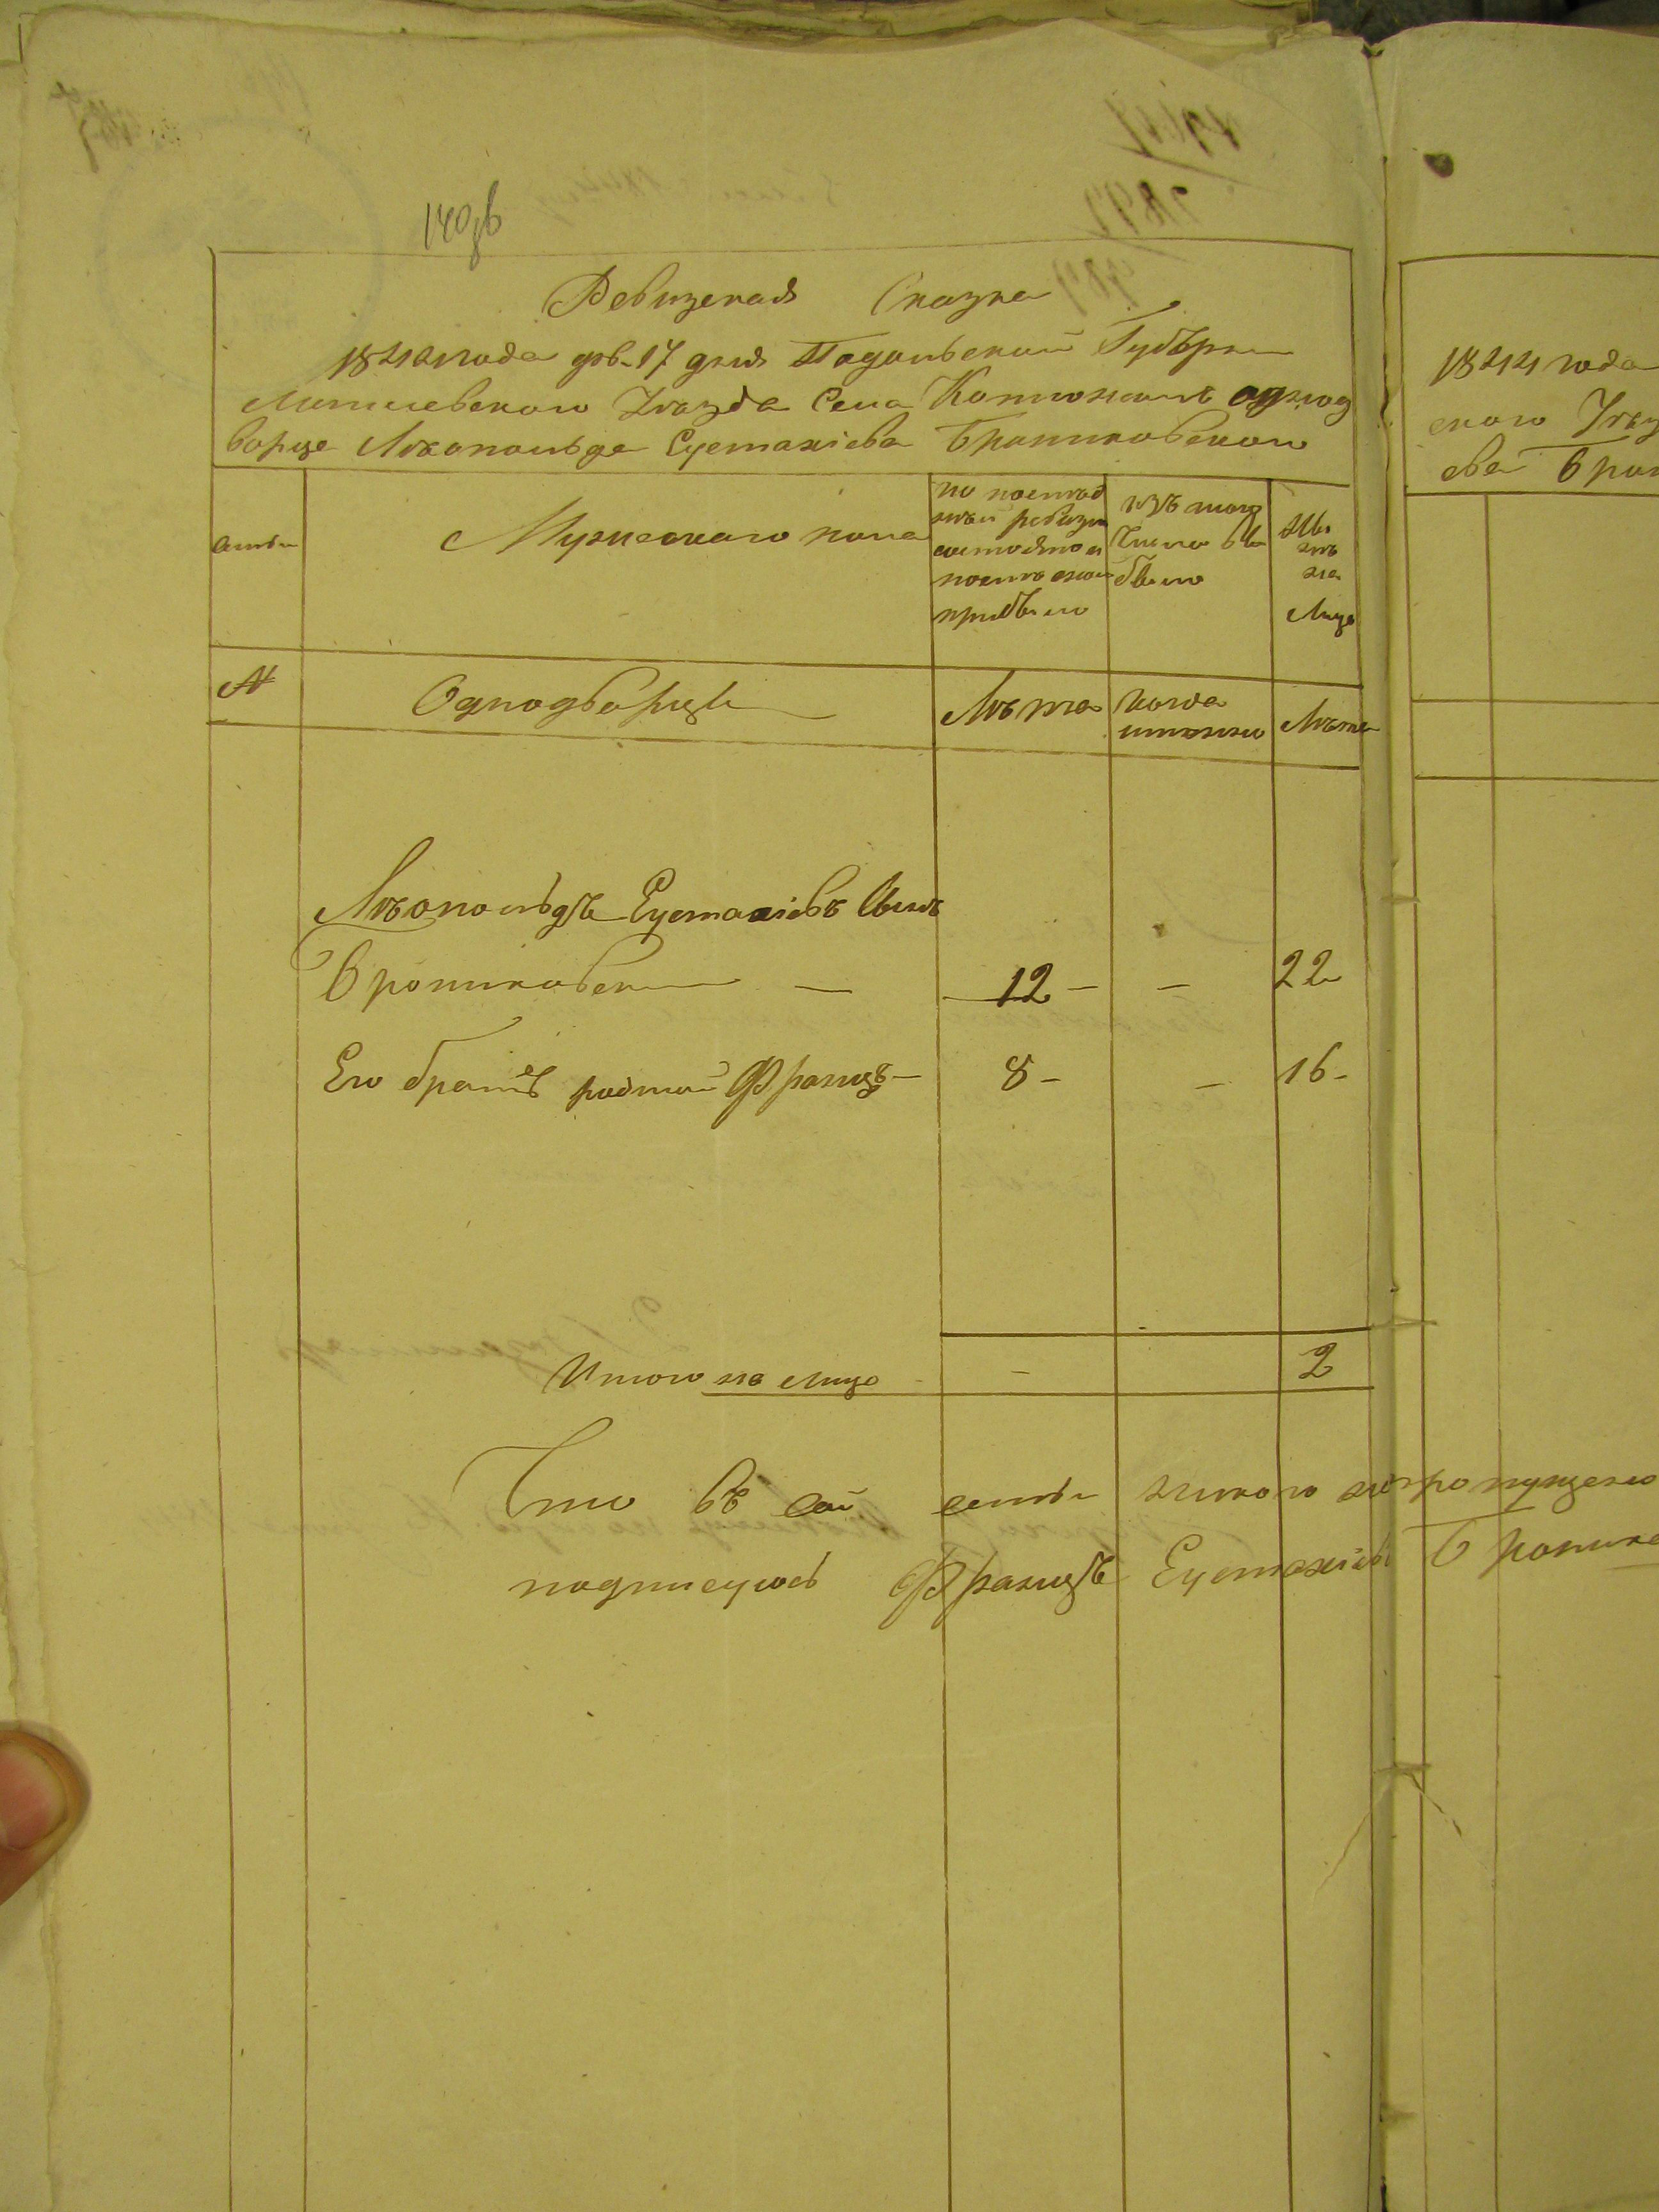 140 об
Ревизская Сказка
1844 года фев. 17 дня Подольской Губерни
Литичевскаго Уѣзда Села одноd
ворца Лѣопольда Еустахіева Брониковскаго
1844 года
скаго Уѣзд
ева Брон
Мужескаго пола
по послѣд
ней ревизи
состояло и
послѣ оной
прибыло
изъ того
Числа вы
было
Ны
нѣ
на
Лицо
№
Однодворцы
Лѣта
когда
именно
Лѣта
Лѣопольдъ Еустахіевъ Сынъ
Брониковски — 12 — — 22
Его братъ родной Францъ — 8 — — 16 -
Итого на лицо — 2
Что въ сей семьи никого не пропущено
подписуюсь Францъ Еустахіевъ Броников